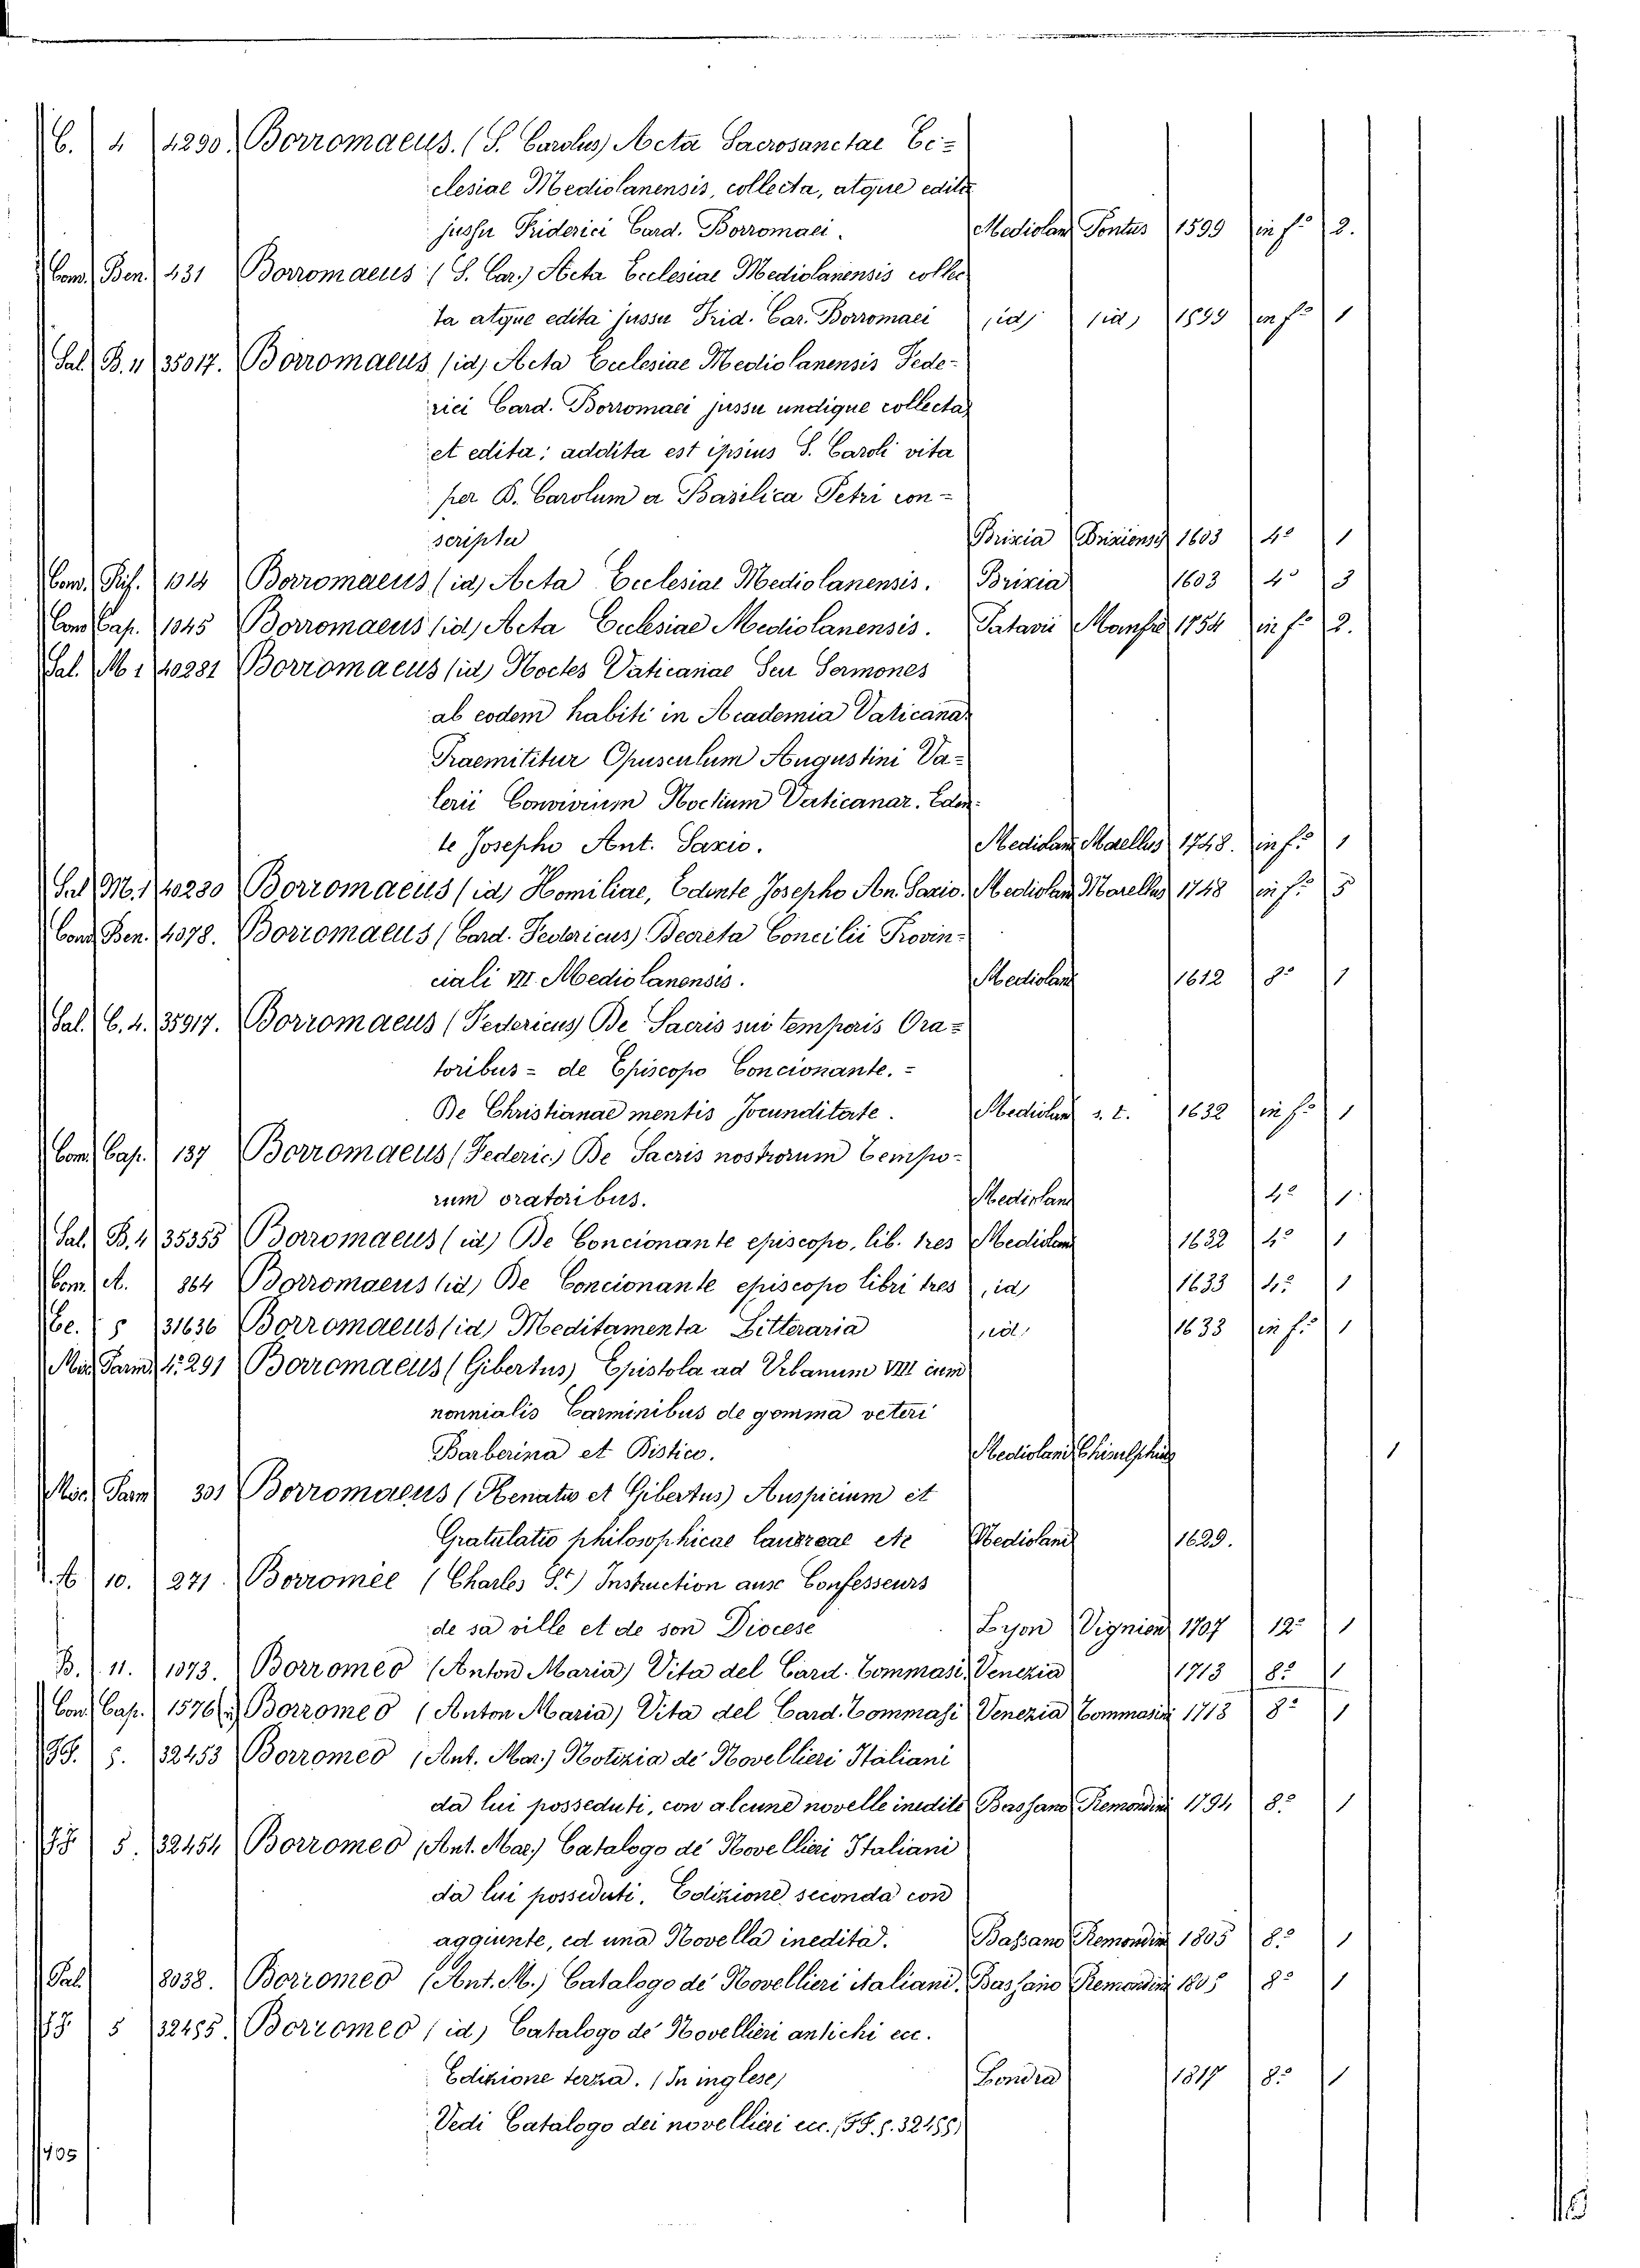 C. 4 4290. Borromaeus. (S. Carolus) Acta Sacrosanctae Ec-
clesiae Mediolanensis, collecta, atque edita
jussu Friderici Card. Borromaei. Mediolan Pontus 1599 in f.° 2.
Com. Ben. 431 Borromaeus (S. Car.) Acta Ecclesiae Mediolanensis collec
ta atque edita jussu Frid. Car. Borromaei (id) (id) 1599 in f.° 1
Sal. B. 11 35017. Borromaeus (id) Acta Ecclesiae Mediolanensis Fede-
rici Card. Borromaei jussu undique collecta
et edita; addita est ipsius S. Caroli vita
per B. Carolum a Basilica Petri con-
scripta Brixia Brixiensis 1603 4.° 1
Com. Rif. 1014 Borromaeus (id) Acta Ecclesiae Mediolanensis. Brixia 1603 4.° 3
Com Cap. 1045 Borromaeus (id) Acta Ecclesiae Mediolanensis. Patavii Manfre 1754 in f.° 2.
Sal. M 1 40281 Borromaeus (id) Noctes Vaticanae Seu Sermones
ab eodem habiti in Academia Vaticana
Praemititur Opusculum Augustini Va-
lerii Convivium Noctium Vaticanar. Eden-
te Josepho Ant. Saxio. Mediolan Marellus 1748. in f.° 1
Sal M. 1 40280 Borromaeus (id) Homiliae, Edente Josepho An. Saxio. Mediolan Marellus 1748 in f.° 5
Com Ben. 4078. Borromaeus (Card. Federicus) Decreta Concilii Provin-
ciali VII. Mediolanensis. Mediolan 1612 8.° 1
Sal. C. 4. 35917. Borromaeus (Federicus) De Sacris sui temporis Ora-
toribus = de Episcopo Concionante. =
De Christianae mentis Jocunditate. Mediolan s. t. 1632 in f.° 1
Com. Cap. 137 Borromaeus (Federic.) De Sacris nostrorum tempo-
rum oratoribus. Mediolan 4.° 1.
Sal. B. 4 35355 Borromaeus (id) De Concionante episcopo, lib. tres Mediolan 1632 4.° 1
Com. A. 864 Borromaeus (id) De Concionante episcopo libri tres (id) 1633 4.° 1
Cc. 5 31636 Borromaeus (id) Meditamenta Litteraria (id) 1633 in f.° 1
Parm. 4.° 291 Borromaeus (Gibertus) Epistola ad Urbanum VIII cum
nonnialis Carminibus de gemma veteri
Barberina et Bistico. Mediolani 1
Parm 301 Borromaeus (Renatus et Gibertus) Auspicium et
Gratulatio philosophicae laureae etc Mediolani 1629.
10. 271. Borromée (Charles S.t) Instruction aux Confesseurs
de sa ville et de son Diocese Lyon Vignieu 1707 12.° 1
B. 11. 1073. Borromeo (Anton Maria) Vita del Card. Tommasi, Venezia 1713 8.° 1
Con. Cap. 1576 Borromeo (Anton Maria) Vita del Card. Tommasi Venezia Tommasini 1713 8.° 1
FF. 5. 32453 Borromeo (Ant. Mar.) Notizia de' Novellieri Italiani
da lui posseduti, con alcune novelle inedite Bassano Remondini 1794 8.° 1
FF 5. 32454 Borromeo (Ant. Mar.) Catalogo de' Novellieri Italiani
da lui posseduti. Edizione seconda con
aggiunte, ed una Novella inedita. Bassano Remondini 1805 8.° 1
Pal. 8038. Borromeo (Ant. M.) Catalogo de' Novellieri italiani. Bassano Remondini 1805 8.° 1
FF. 5 32485. Borromeo (id) Catalogo de' Novellieri antichi ecc.
Edizione terza. (In inglese) Londra 1817 8.° 1
Vedi Catalogo dei novellieri ecc. (FF. 5. 32485)